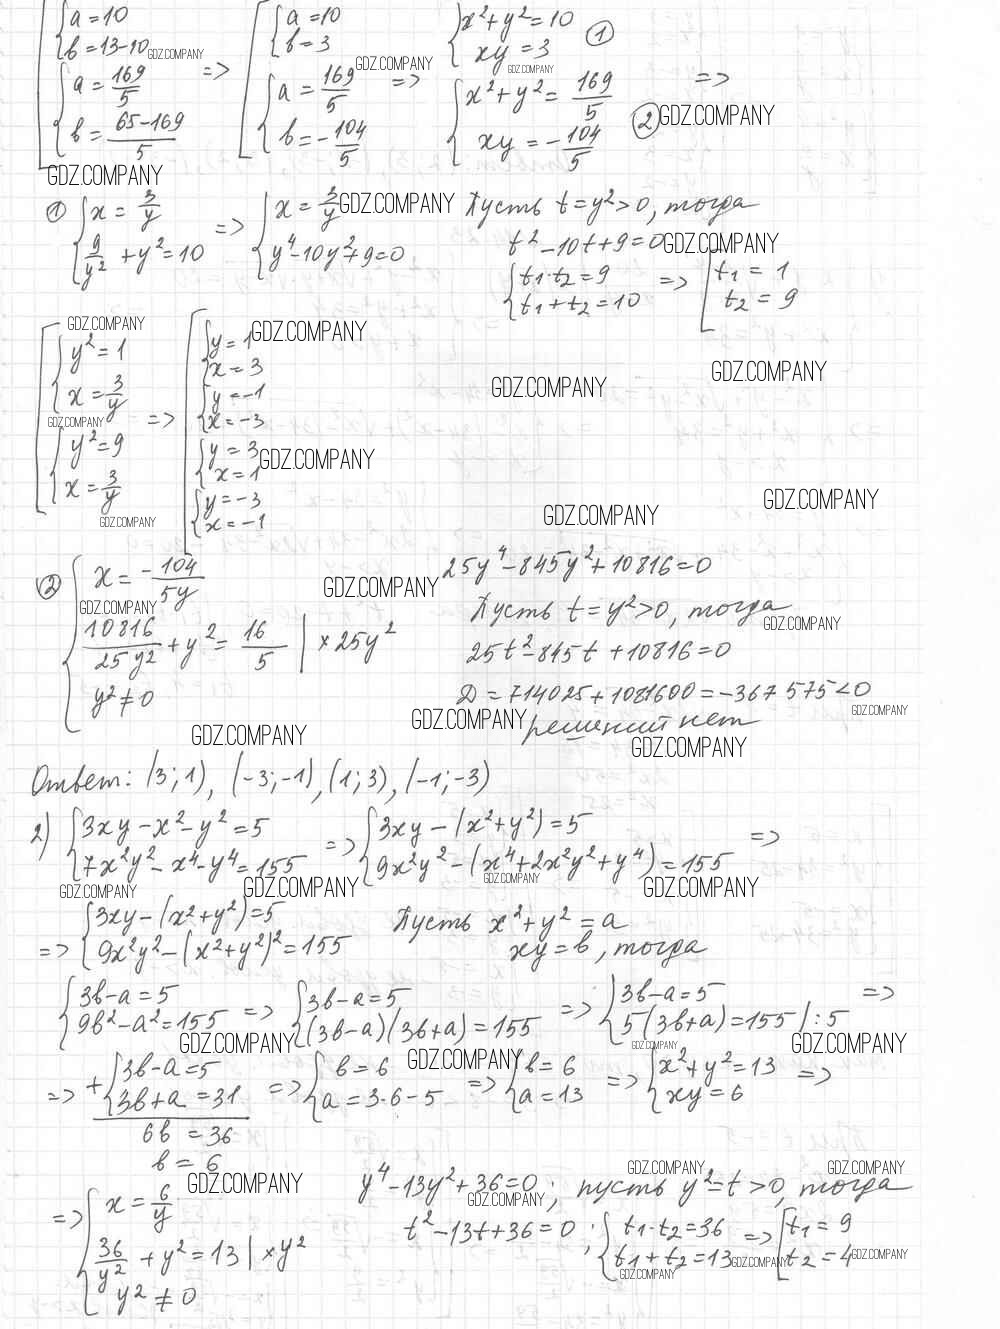 [ { a = 10 ; b = 13-10 ; { a = 169/5 ; b = (65-169)/5 => [ { a = 10 ; b = 3 ; { a = 169/5 ; b = -104/5 => { x²+y² = 10 ; xy = 3 ① ; { x²+y² = 169/5 ; xy = -104/5 ② =>
GDZ.COMPANY
GDZ.COMPANY
GDZ.COMPANY
GDZ.COMPANY
GDZ.COMPANY
① { x = 3/y ; 9/y² + y² = 10 => { x = 3/y ; y⁴-10y²+9=0
GDZ.COMPANY
Пусть t = y² > 0, тогда
t² - 10t + 9 = 0
GDZ.COMPANY
{ t₁·t₂ = 9 ; t₁+t₂ = 10 => [ t₁ = 1 ; t₂ = 9
GDZ.COMPANY
[ { y² = 1 ; x = 3/y ; { y² = 9 ; x = 3/y => [ { y = 1 ; x = 3 ; { y = -1 ; x = -3 ; { y = 3 ; x = 1 ; { y = -3 ; x = -1
GDZ.COMPANY
GDZ.COMPANY
GDZ.COMPANY
GDZ.COMPANY
GDZ.COMPANY
GDZ.COMPANY
GDZ.COMPANY
GDZ.COMPANY
② { x = -104/5y ; 10816/25y² + y² = 16/5 | ×25y² ; y² ≠ 0
GDZ.COMPANY
GDZ.COMPANY
25y⁴ - 845y² + 10816 = 0
Пусть t = y² > 0, тогда
GDZ.COMPANY
25t² - 845t + 10816 = 0
D = 714025 + 1081600 = -367 575 < 0
GDZ.COMPANY
GDZ.COMPANY
решений нет
GDZ.COMPANY
GDZ.COMPANY
Ответ: (3; 1), (-3; -1), (1; 3), (-1; -3)
2) { 3xy - x² - y² = 5 ; 7x²y² - x⁴ - y⁴ = 155 => { 3xy - (x²+y²) = 5 ; 9x²y² - (x⁴+2x²y²+y⁴) = 155 =>
GDZ.COMPANY
GDZ.COMPANY
GDZ.COMPANY
GDZ.COMPANY
=> { 3xy - (x²+y²) = 5 ; 9x²y² - (x²+y²)² = 155
Пусть x²+y² = a
xy = b, тогда
{ 3b-a = 5 ; 9b²-a² = 155 => { 3b-a = 5 ; (3b-a)(3b+a) = 155 => { 3b-a = 5 ; 5(3b+a) = 155 | :5 =>
GDZ.COMPANY
GDZ.COMPANY
GDZ.COMPANY
GDZ.COMPANY
=> + { 3b-a = 5 ; 3b+a = 31 => { b = 6 ; a = 3·6-5 => { b = 6 ; a = 13 => { x²+y² = 13 ; xy = 6 =>
6b = 36
b = 6
GDZ.COMPANY
=> { x = 6/y ; 36/y² + y² = 13 | ×y² ; y² ≠ 0
y⁴ - 13y² + 36 = 0; пусть y² = t > 0, тогда
GDZ.COMPANY
GDZ.COMPANY
GDZ.COMPANY
t² - 13t + 36 = 0; { t₁·t₂ = 36 ; t₁+t₂ = 13 => [ t₁ = 9 ; t₂ = 4
GDZ.COMPANY
GDZ.COMPANY
GDZ.COMPANY